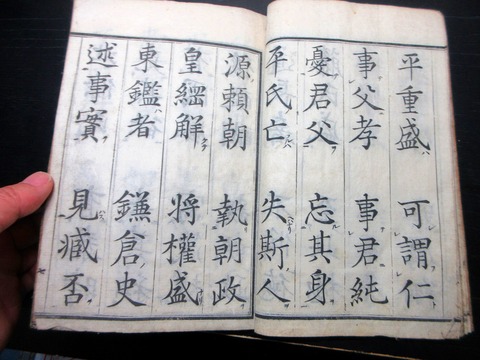 平重盛 可謂仁
事父孝 事君純
憂君父 忘其身
平氏亡 失斯人
源頼朝 執朝政
皇綱解 將權盛
東鑑者 鎌倉史
述事實 見臧否